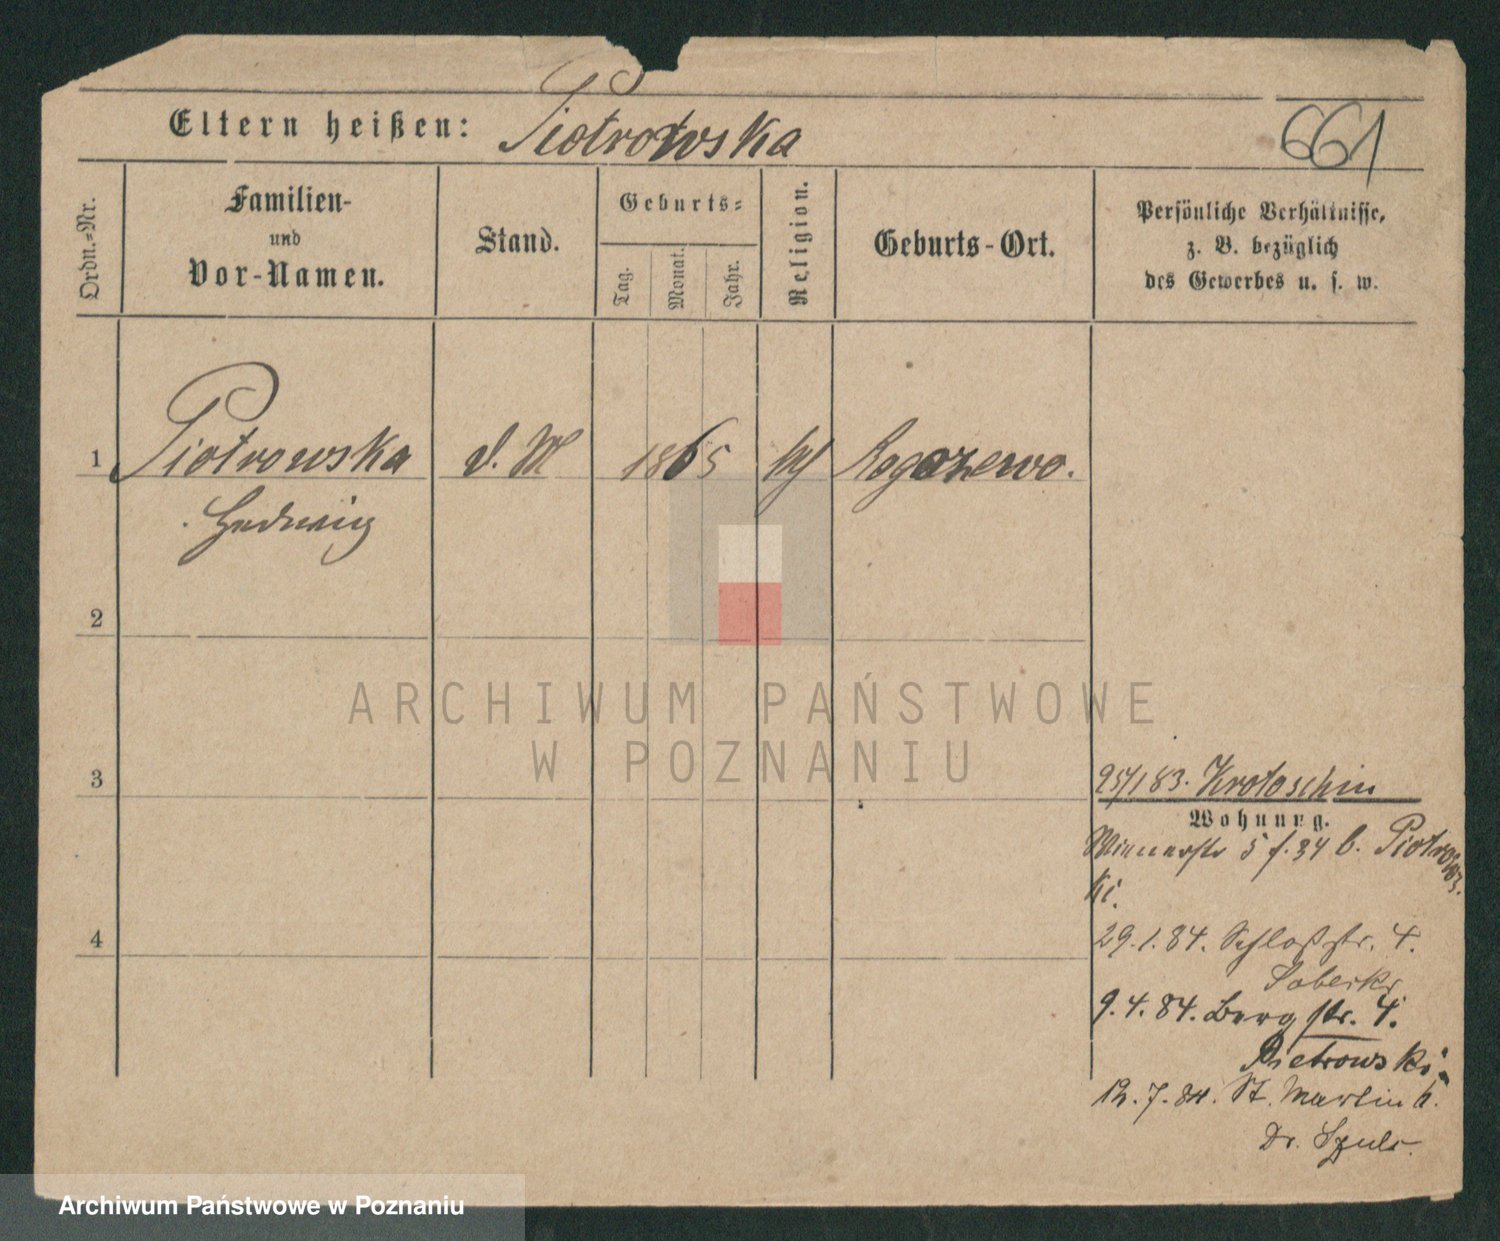 Eltern heißen: Piotrowska
661
Ordn.-Nr.
Familien-
und
Vor-Namen.
Stand.
Geburts-
Tag.
Monat.
Jahr.
Religion.
Geburts-Ort.
Persönliche Verhältnisse,
z. B. bezüglich
des Gewerbes u. s. w.
1 Piotrowska d. M 1865 Rogozewo.
Hedwig
2
3
4
83. Krotoschin
Wohnung.
Wienerstr 5 b. Piotrows
ki.
29.1.84. Schloßstr. 4.
9.4.84. Bergstr. 4.
Pietrowski
12.7.84. St. Martin
Dr. Szulc.
ARCHIWUM PAŃSTWOWE
W POZNANIU
Archiwum Państwowe w Poznaniu